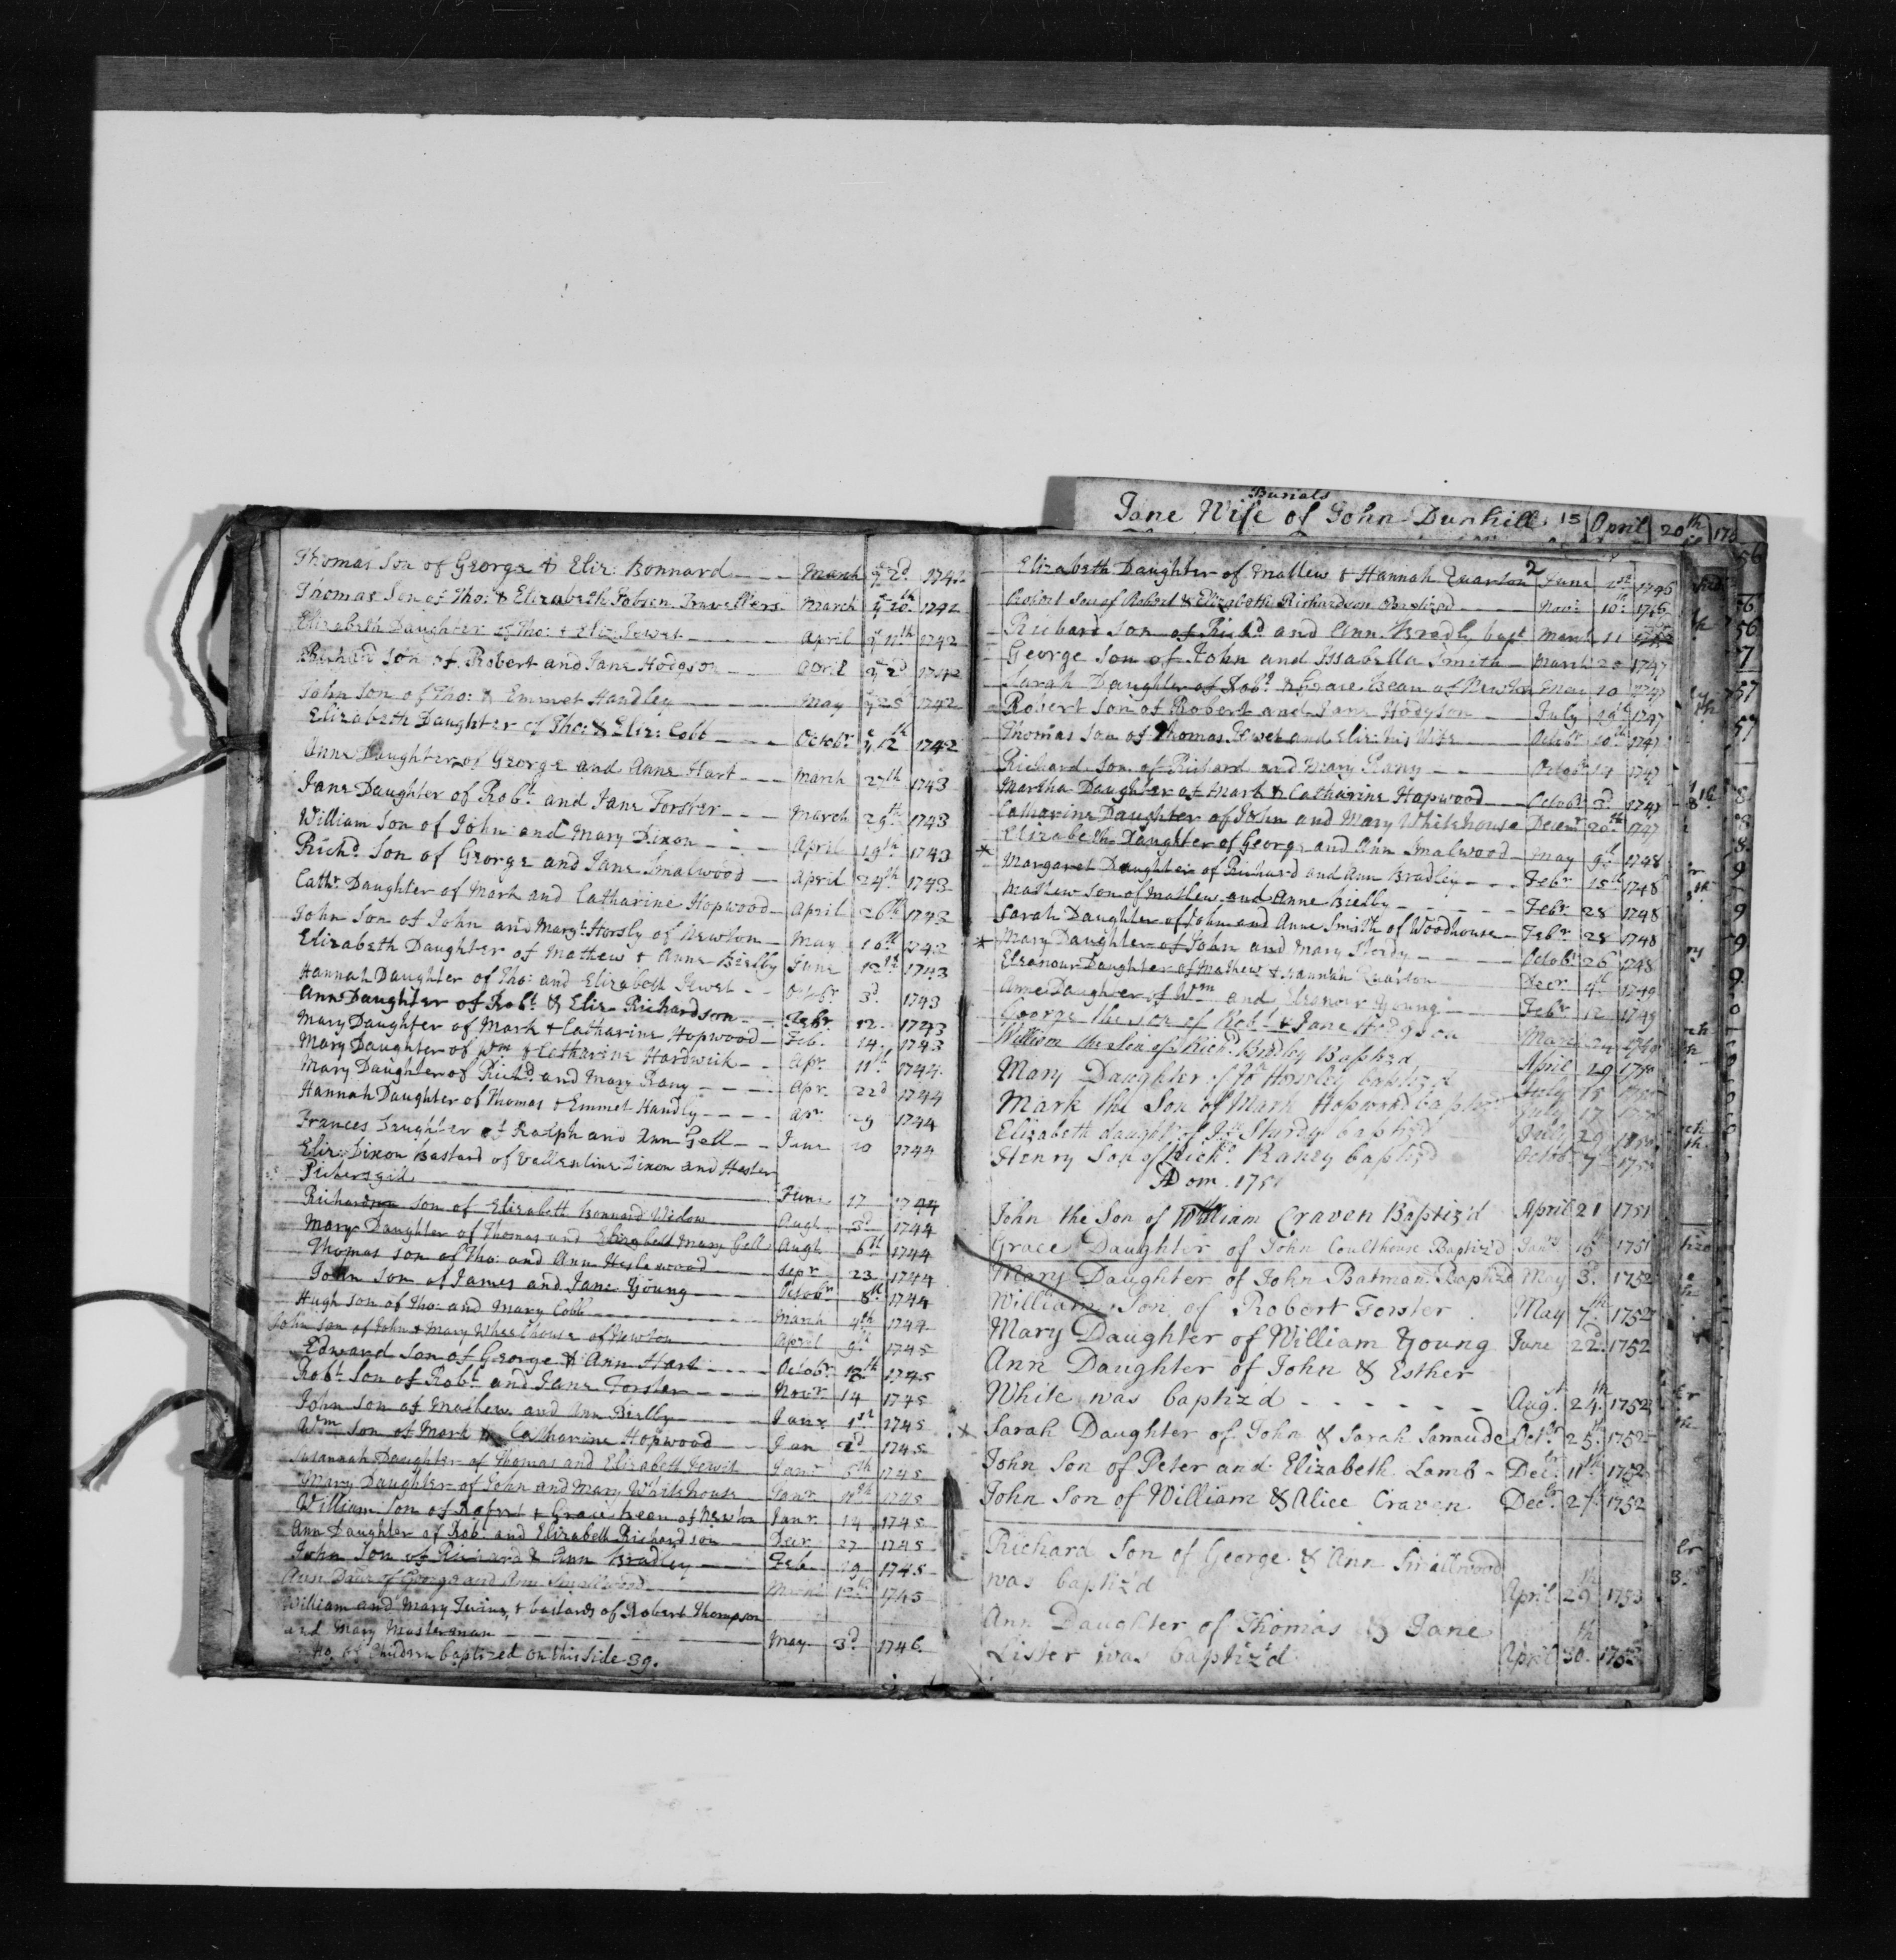 Burials
Jane Wife of John Dunhill 15 April 20th 17
Thomas Son of George & Eliz: Bonnard March ye 2d 1742
Thomas Son of Tho: & Elizabeth Jobson Travellers March ye 20th 1742
Elizabeth Daughter of Tho: & Eliz: Jewet April ye 11th 1742
Richard Son of Robert and Jane Hodgson April ye 2d 1742
John Son of Tho: & Emmet Handley May ye 25 1742
Elizabeth Daughter of Tho: & Eliz: Cobb Octobr ye 12th 1742
Anne Daughter of George and Anne Hart March 27th 1743
Jane Daughter of Robt and Jane Forster March 29th 1743
William Son of John and Mary Dixon April 19th 1743
Richd Son of George and Jane Smalwood April 24th 1743
Cathr Daughter of Mark and Catharine Hopwood April 26th 1743
John Son of John and Margt Horsly of Newton May 10th 1742
Elizabeth Daughter of Mathew & Anne Bielby June 12th 1743
Hannah Daughter of Tho: and Elizabeth Jewet Octbr 3d 1743
Ann Daughter of Robt & Eliz Richardson Febr 12 1743
Mary Daughter of Mark & Catharine Hopwood Feb. 14 1743
Mary Daughter of Wm & Catharine Hardwick Apr. 11th 1744
Mary Daughter of Richd and Mary Rany Apr. 22d 1744
Hannah Daughter of Thomas & Emmet Handly Apr. 29 1744
Frances Daughter of Ralph and Ann Gell June 10 1744
Eliz: Dixon Bastard of Vallentine Dixon and Hester
Pickersgill June 17 1744
Richard Son of Elizabeth Bonnard Widow Augt 3d 1744
Mary Daughter of Thomas and Mary Gell Augt 6th 1744
Thomas Son of Tho: and Ann Heslewood Sepr 23 1744
John Son of James and Jane Young Octobr 8th 1744
Hugh Son of Tho: and Mary Cobb March 4th 1744
John Son of John & Mary Wheelhouse of Newton April 9th 1745
Edward Son of George & Ann Hart Octobr 13th 1745
Robt Son of Robt and Jane Forster Novr 14 1745
John Son of Mathew and Ann Bielby Janr 1st 1745
Wm Son of Mark & Catharine Hopwood Jan 2d 1745
Susannah Daughter of Thomas and Elizabeth Jewit Janr 5th 1745
Mary Daughter of John and Mary Whitehouse Janr 11th 1745
William Son of Robert & Grace Bean of Newton Janr 14 1745
Ann Daughter of Rob: and Elizabeth Richardson Decr 27 1745
John Son of Richard & Ann Bradley Feb 29 1745
Ann Daur of George and Ann Smallwood March 12th 1745
William and Mary Twins, & bastards of Robert Thompson
and Mary Masterman May 3d 1746
No of Children baptized on this side 39.
2
Elizabeth Daughter of Mathew & Hannah Quarton June 1st 1746
Robert Son of Robert & Elizabeth Richardson Baptized Novr 10th 1746
Richard Son of Richd and Ann Bradly bapt March 11
George Son of John and Issabella Smith March 20 1747
Sarah Daughter of Robt & Grace Bean of Newton May 10 1747
Robert Son of Robert and Jane Hodgson July 19th 1747
Thomas Son of Thomas Jewet and Eliz: his Wife Octobr 10th 1747
Richard Son of Richard and Mary Rany Octobr 14 1747
Martha Daughter of Mark & Catharine Hopwood Octobr 3d 1747
Catharine Daughter of John and Mary Whitehouse Decemr 20th 1747
Elizabeth Daughter of George and Ann Smalwood May 9th 1748
* Margaret Daughter of Richard and Ann Bradley Febr 15th 1748
Mathew Son of Mathew and Anne Bielby Febr 28 1748
Sarah Daughter of John and Anne Smith of Woodhouse Febr 28 1748
* Mary Daughter of John and Mary Sterdy Octobr 26 1748
Eleanour Daughter of Mathew & Hannah Quarton Decr 4th 1749
Anne Daughter of Wm and Eleanour Young Febr 12 1749
George the Son of Robt & Jane Hodgson March 24
William the Son of Richd Bradley Baptizd April 29 1750
Mary Daughter of Jn Horsley baptizd July 15
Mark the Son of Mark Hopwood baptizd July 17
Elizabeth daughtr of Jn Sturdy baptizd July 29 1750
Henry Son of Richd Raney baptizd Octobr 7th 1750
A Dom. 1751
John the Son of William Craven Baptiz'd April 21 1751
Grace Daughter of John Coulthouse Baptiz'd Janry 15th 1751
Mary Daughter of John Batman Baptiz'd May 3d 1752
William Son of Robert Forster May 7th 1752
Mary Daughter of William Young June 22d 1752
Ann Daughter of John & Esther
White was baptiz'd Augst 24th 1752
x Sarah Daughter of John & Sarah Octbr 25th 1752
John Son of Peter and Elizabeth Lamb Decbr 11th 1752
John Son of William & Alice Craven Decbr 27th 1752
Richard Son of George & Ann Smallwood
was baptiz'd April 29th 1753
Ann Daughter of Thomas & Jane
Lister was baptiz'd April 30th 1753